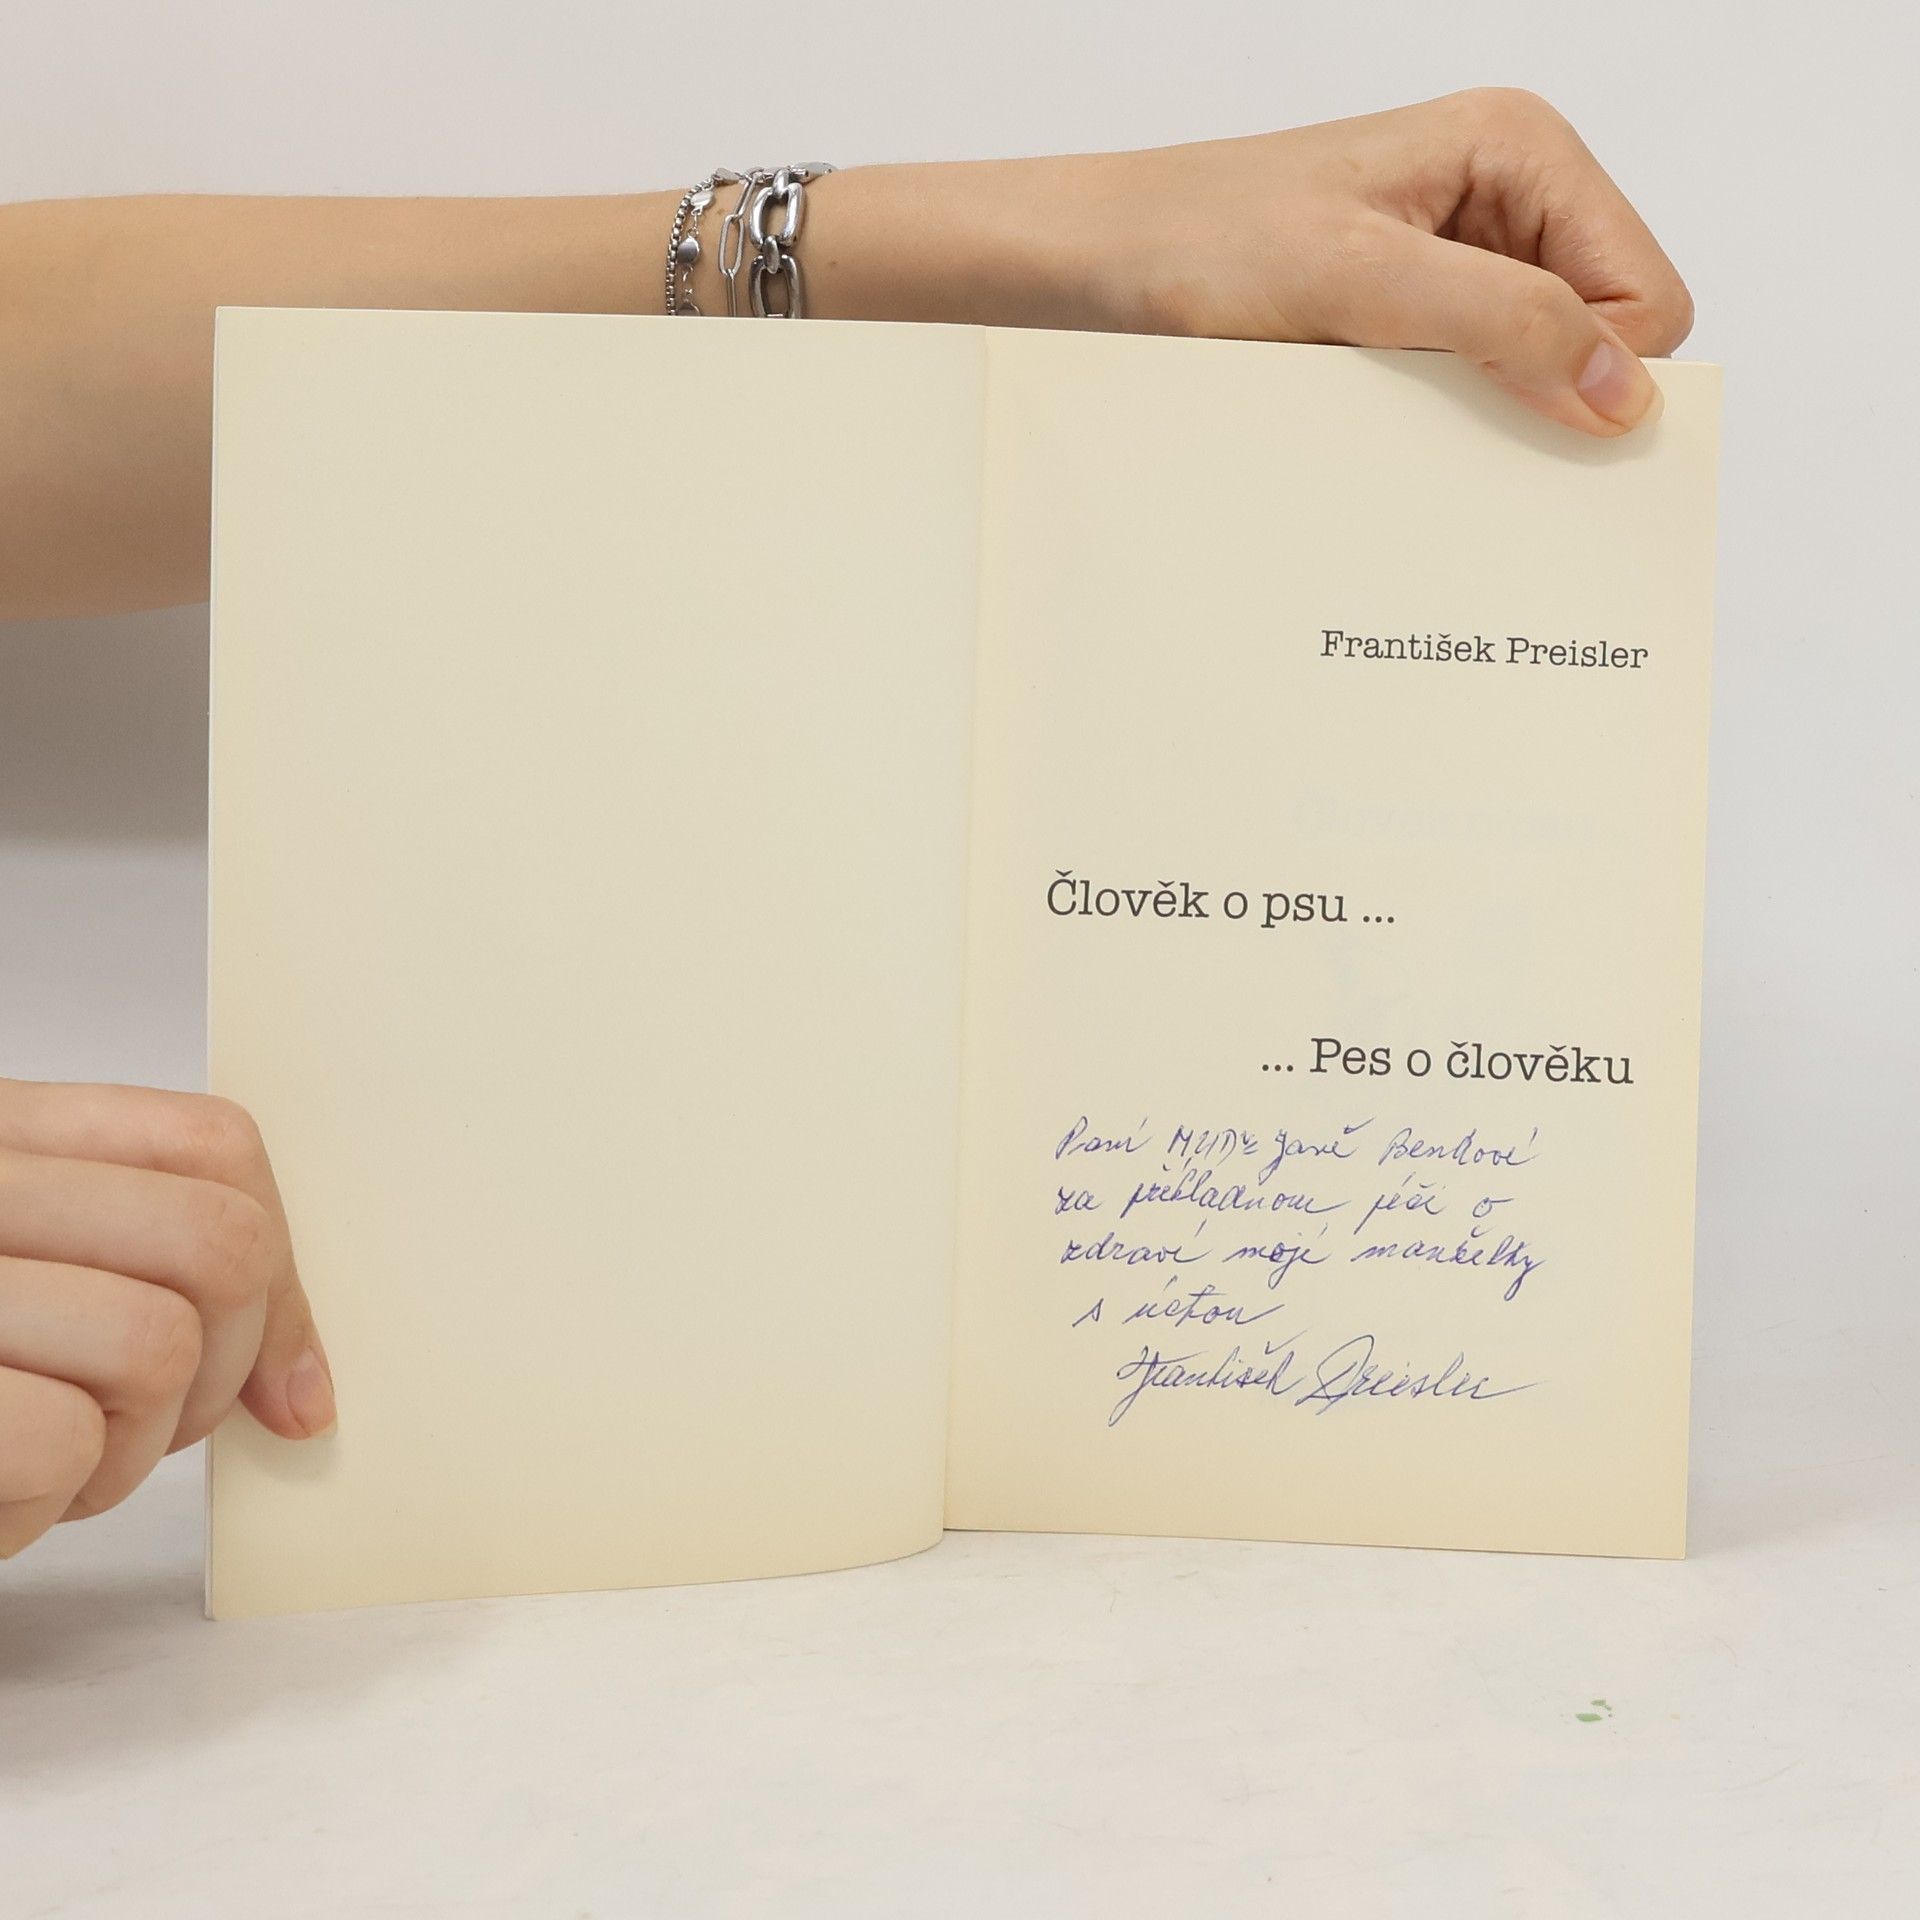 František Preisler
Člověk o psu ...
... Pes o člověku
Paní MUDr Janě Bendové
za příkladnou péči o
zdraví mojí manželky
s úctou
František Preisler